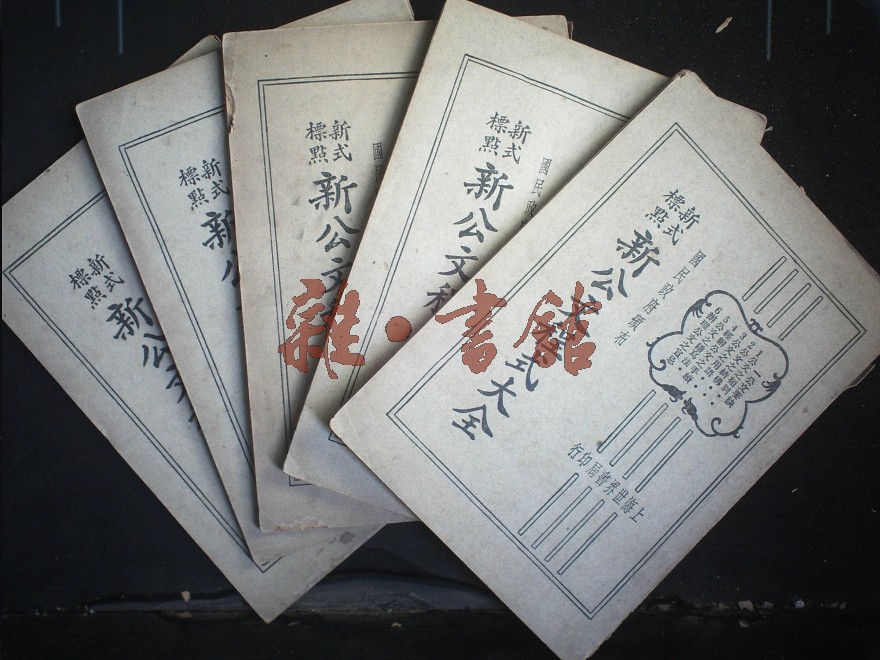 新式
標點
新公文
新式
標點
新公
新式
標點
國民
新公文程
新式
標點
國民政
新公文程
新式
標點
國民政府頒布
新公文程式大全
上海世界書局印行
雜·書館